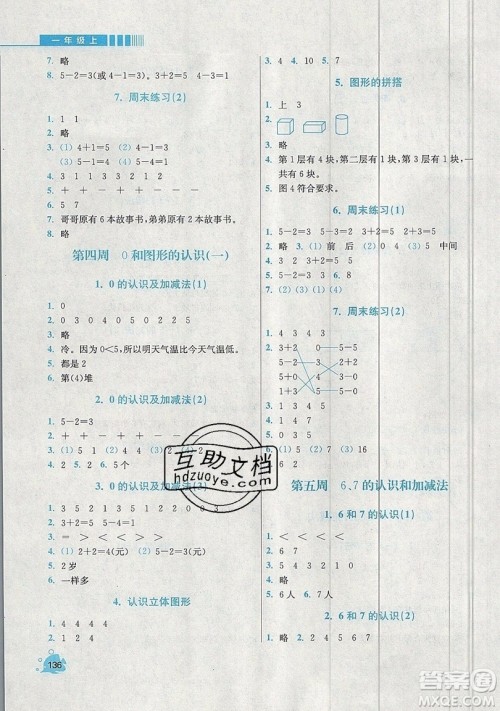 一年级上
7. 略
8. 5－2＝3(或4－1＝3)。
7. 周末练习(2)
1. 1 1
2. 略
3. (1) 4＋1＝5 (2) 5－4＝1
(3) 5－4＝1 (4) 4＋1＝5
4. 1 5 2 3 5 4
5. － ＋ － ＋ ＋ －
6. 略
7. 哥哥原有6本故事书，弟弟原有2本故事书。
8. 略
第四周 0和图形的认识(一)
1. 0的认识及加减法(1)
1. 0 0
2. 0 1 2 3 4 5
3. 略
4. 冷。因为0＜5，所以明天气温比今天气温低。
5. 都是2
6. 第(4)堆
2. 0的认识及加减法(2)
1. 5－2＝3
2. ＋ ＋ － ＋ － －
5. 2 6. 5个
3. 0的认识及加减法(3)
1. 3 3 3 3 3
2. ＞ ＜ ＜ ＞
3. 略
4. (1) 2＋2＝4(元) (2) 3＋2＝5(元)
5. 2岁
6. 一样多
4. 认识立体图形
1. 4 1 2 3
2. 1 2 4 4
136
3. 4 10 5 7
5. 图形的拼搭
1. 上 3
2.
3. 略
4. 第1层有4块，第二层有1块，第三层有1块，
共有6块。
5. 图4符合要求。
6. 周末练习(1)
1. 5－2＝3 5－3＝2
2. 略 3. (1) 前 后 (2) 0 4 5 中间
4. 4 3 2 2
5. 0 2 3 3 2 4
6. 略
7. (2) (3) (1) (4)
7. 周末练习(2)
1. 4 3 4 3
2. 3＋2 0 5－5
5－2 3 5－0
4＋0 4 5－1
0＋0 5 5－2
3. 1 2 3 2
4. 0 1 1 5
5. 略 6. (1) 5 (2) 3 7. 略
第五周 6、7的认识和加减法
1. 6和7的认识(1)
1. ＜ ＜ ＜ ＜ ＜
4. 略
5. 6人 6. 8人
2. 6和7的认识(2)
1. 略
互助文档
hdzuoye.com
答案圈